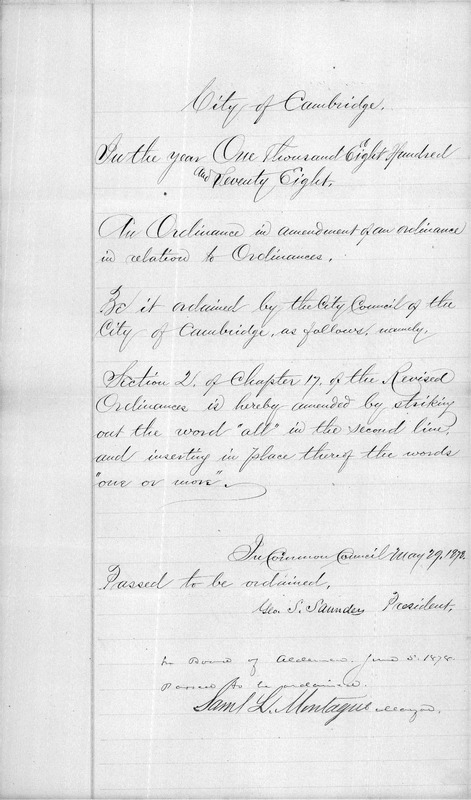 City of Cambridge.
In the year One Thousand Eight Hundred
and Seventy Eight.
An Ordinance in amendment of an ordinance
in relation to Ordinances.
Be it ordained by the City Council of the
City of Cambridge, as follows, namely,
Section 2. of Chapter 17, of the Revised
Ordinances is hereby amended by striking
out the word "all" in the second line,
and inserting in place thereof the words
"one or more".
In Common Council May 29, 1878.
Passed to be ordained,
Geo. S. Saunders President.
In Board of Aldermen. June 5. 1878.
Passed to be ordained.
Saml L. Montague Mayor.